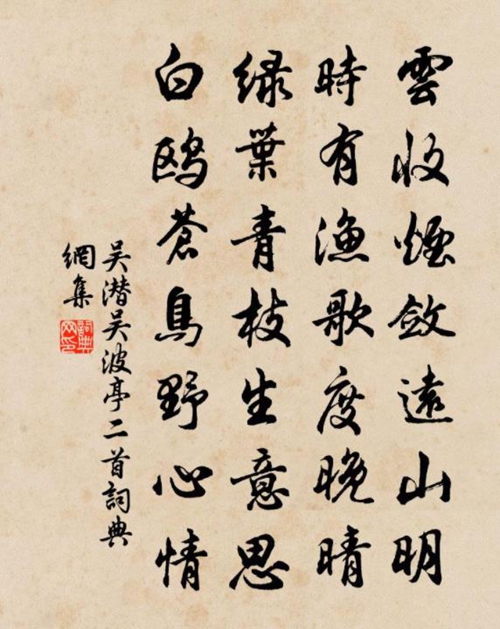 雲收煙斂遠山明
時有漁歌度晚晴
绿葉青枝生意思
白鸥蒼鳥野心情
吴潜吴波亭二首詞典
網集
詞典
网印